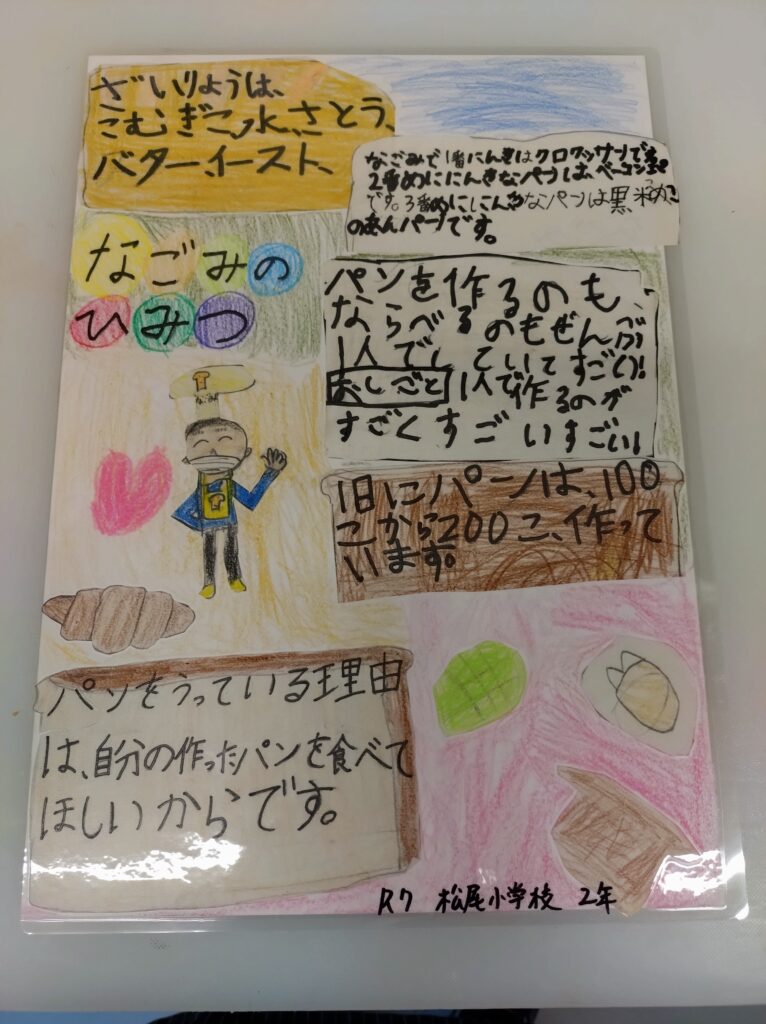 ざいりょうは、
こむぎこ、水、さとう、
バター、イースト、
なごみで1番にんきはクロワッサンです。
2番めににんきなパンは、ベーコン
です。3番めににんきなパンは黒米めこ
のあんパンです。
なごみの
ひみつ
パンを作るのも、
ならべるのもぜんぶ
1人でしていてすごい!
おしごと 1人で作るのが
すごくすごいすごい!
なごみ
1日にパーンは、100
こから200こ、作って
います。
パンをうっている理由
は、自分の作ったパンを食べて
ほしいからです。
R7 松尾小学校 2年